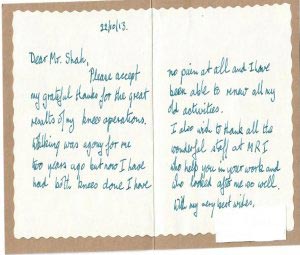 22/10/13.
Dear Mr. Shah,
Please accept
my grateful thanks for the great
results of my knee operations.
Walking was agony for me
two years ago but now I have
had both knees done I have
no pain at all and I have
been able to renew all my
old activities.
I also wish to thank all the
wonderful staff at MRI
who help you in your work and
who looked after me so well.
With my very best wishes,